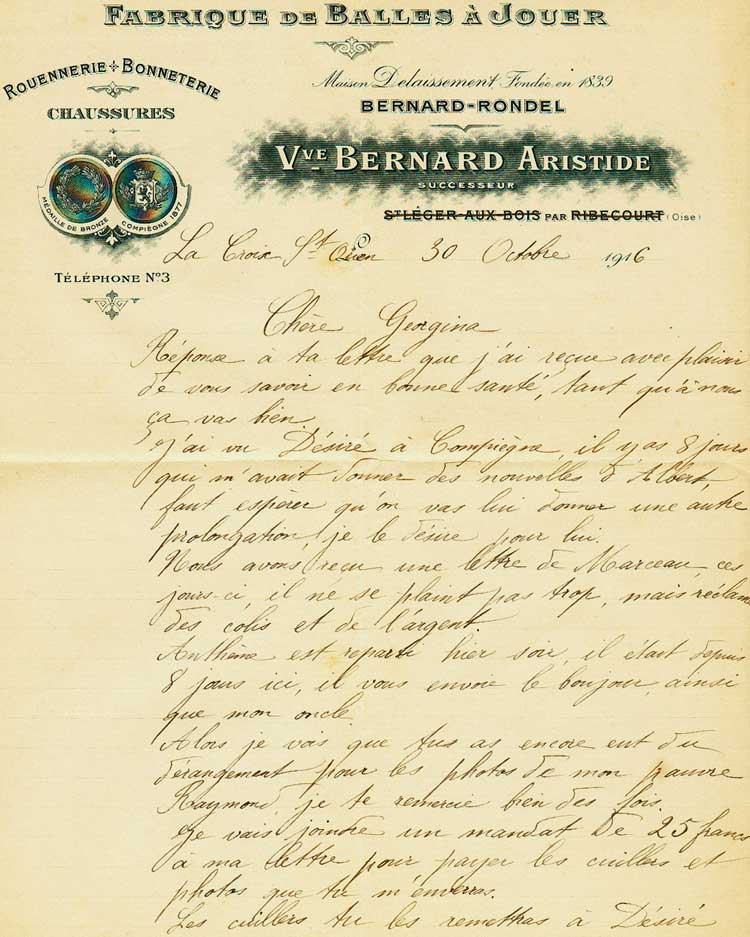 FABRIQUE DE BALLES À JOUER
ROUENNERIE + BONNETERIE
CHAUSSURES
MÉDAILLE DE BRONZE COMPIÈGNE 1877
TÉLÉPHONE Nº3
Maison Delaissement Fondée en 1839
BERNARD-RONDEL
VVE BERNARD ARISTIDE
SUCCESSEUR
ST LÉGER-AUX-BOIS PAR RIBECOURT (Oise)
La Croix St Ouen 30 Octobre 1916
Chère Georgina
Réponse à ta lettre que j'ai reçue avec plaisir
de vous savoir en bonne santé, tant qu'à nous
ça vas bien.
J'ai vu Désiré à Compiègne, il y as 8 jours
qui m'avait donner des nouvelles d'Albert,
faut espérer qu'on vas lui donner une autre
prolongation, je le désire pour lui.
Nous avons reçu une lettre de Marceau, ces
jours-ci, il ne se plaint pas trop, mais réclame
des colis et de l'argent.
Anthème est reparti hier soir, il était depuis
8 jours ici, il vous envoie le bonjour, ainsi
que mon oncle.
Alors je vois que tus as encore eut du
dérangement pour les photos de mon pauvre
Raymond, je te remercie bien des fois.
Je vais joindre un mandat de 25 francs
à ma lettre pour payer les cuillers et
photos que tu m'enverras.
Les cuillers tu les remettras à Désiré